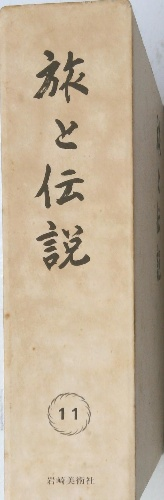 旅と伝説
11
岩崎美術社